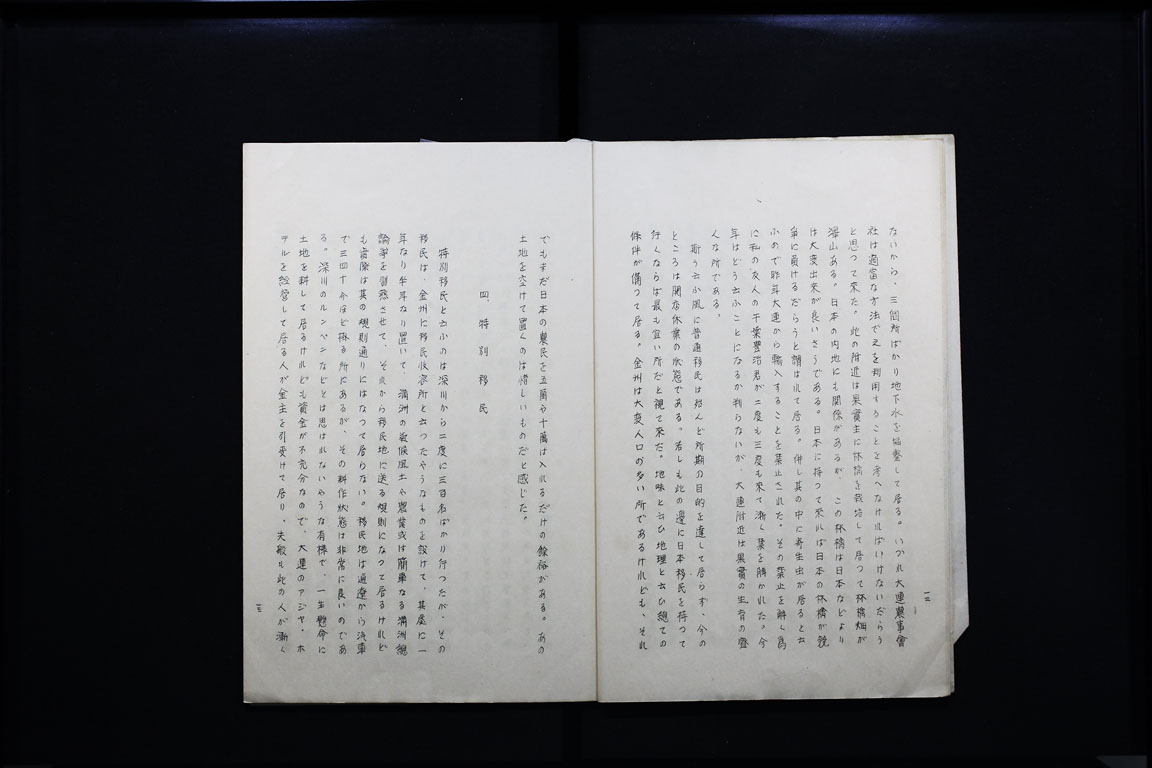 ないから、三個所ばかり地下水を掘鑿して居る。いづれ大連農事會
社は適當な方法で之を利用することを考へなければいけないだらう
と思つて来た。此の附近は果實主に林檎を栽培して居つて林檎畑が
澤山ある。日本の内地にも関係があるが、この林檎は日本などより
は大変出来が良いさうである。日本に持つて来れば日本の林檎が競
争に負けるだらうと謂はれて居る。併し其の中に寄生虫が居ると云
ふので昨年大連から輸入することを禁止された。その禁止を解く為
に私の友人の千葉豊治君が二度も三度も来て漸く禁を解かれた。今
年はどう云ふことになるか判らないが、大連附近は果實の生育の盛
んな所である。
斯う云ふ風に普通移民は殆んど所期の目的を達して居らず、今の
ところは開店休業の状態である。若しも此の邊に日本移民を持つて
行くならば最も宜い所だと視て来た。地味と云ひ地理と云ひ總ての
條件が備つて居る。金州は大変人口の多い所であるけれども、それ
一二
でもまだ日本の農民を五萬や十萬は入れるだけの餘裕がある。あの
土地を空けて置くのは惜しいものだと感じた。
四、特別移民
特別移民と云ふのは深川から二度に三百名ばかり行つたが、その
移民は、金州に移民收容所と云つたやうなものを設けて、其處に一
年なり半年なり置いて、満洲の氣候風土や農業或は簡單なる満洲語
等を習熟させて、それから移民地に送る規則になつて居るけれど
も實際は其の規則通りにはなつて居らない。移民地は通遼から汽車
で三四十分ほど掃る所にあるが、その耕作状態は非常に良いのであ
る。深川のルンペンなどとは思はれないやうな有様で、一生懸命に
土地を耕して居るけれども資金が不充分なので、大連のアジヤ、ホ
テルを経営して居る人が金主を引受けて居り、夫敏も此の人が漸く
一三